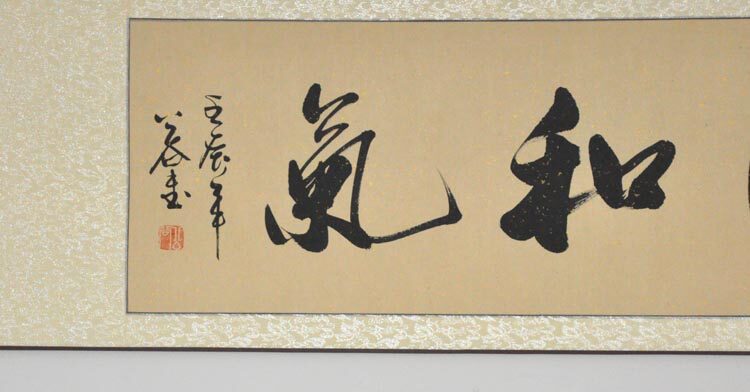 和氣
壬辰年